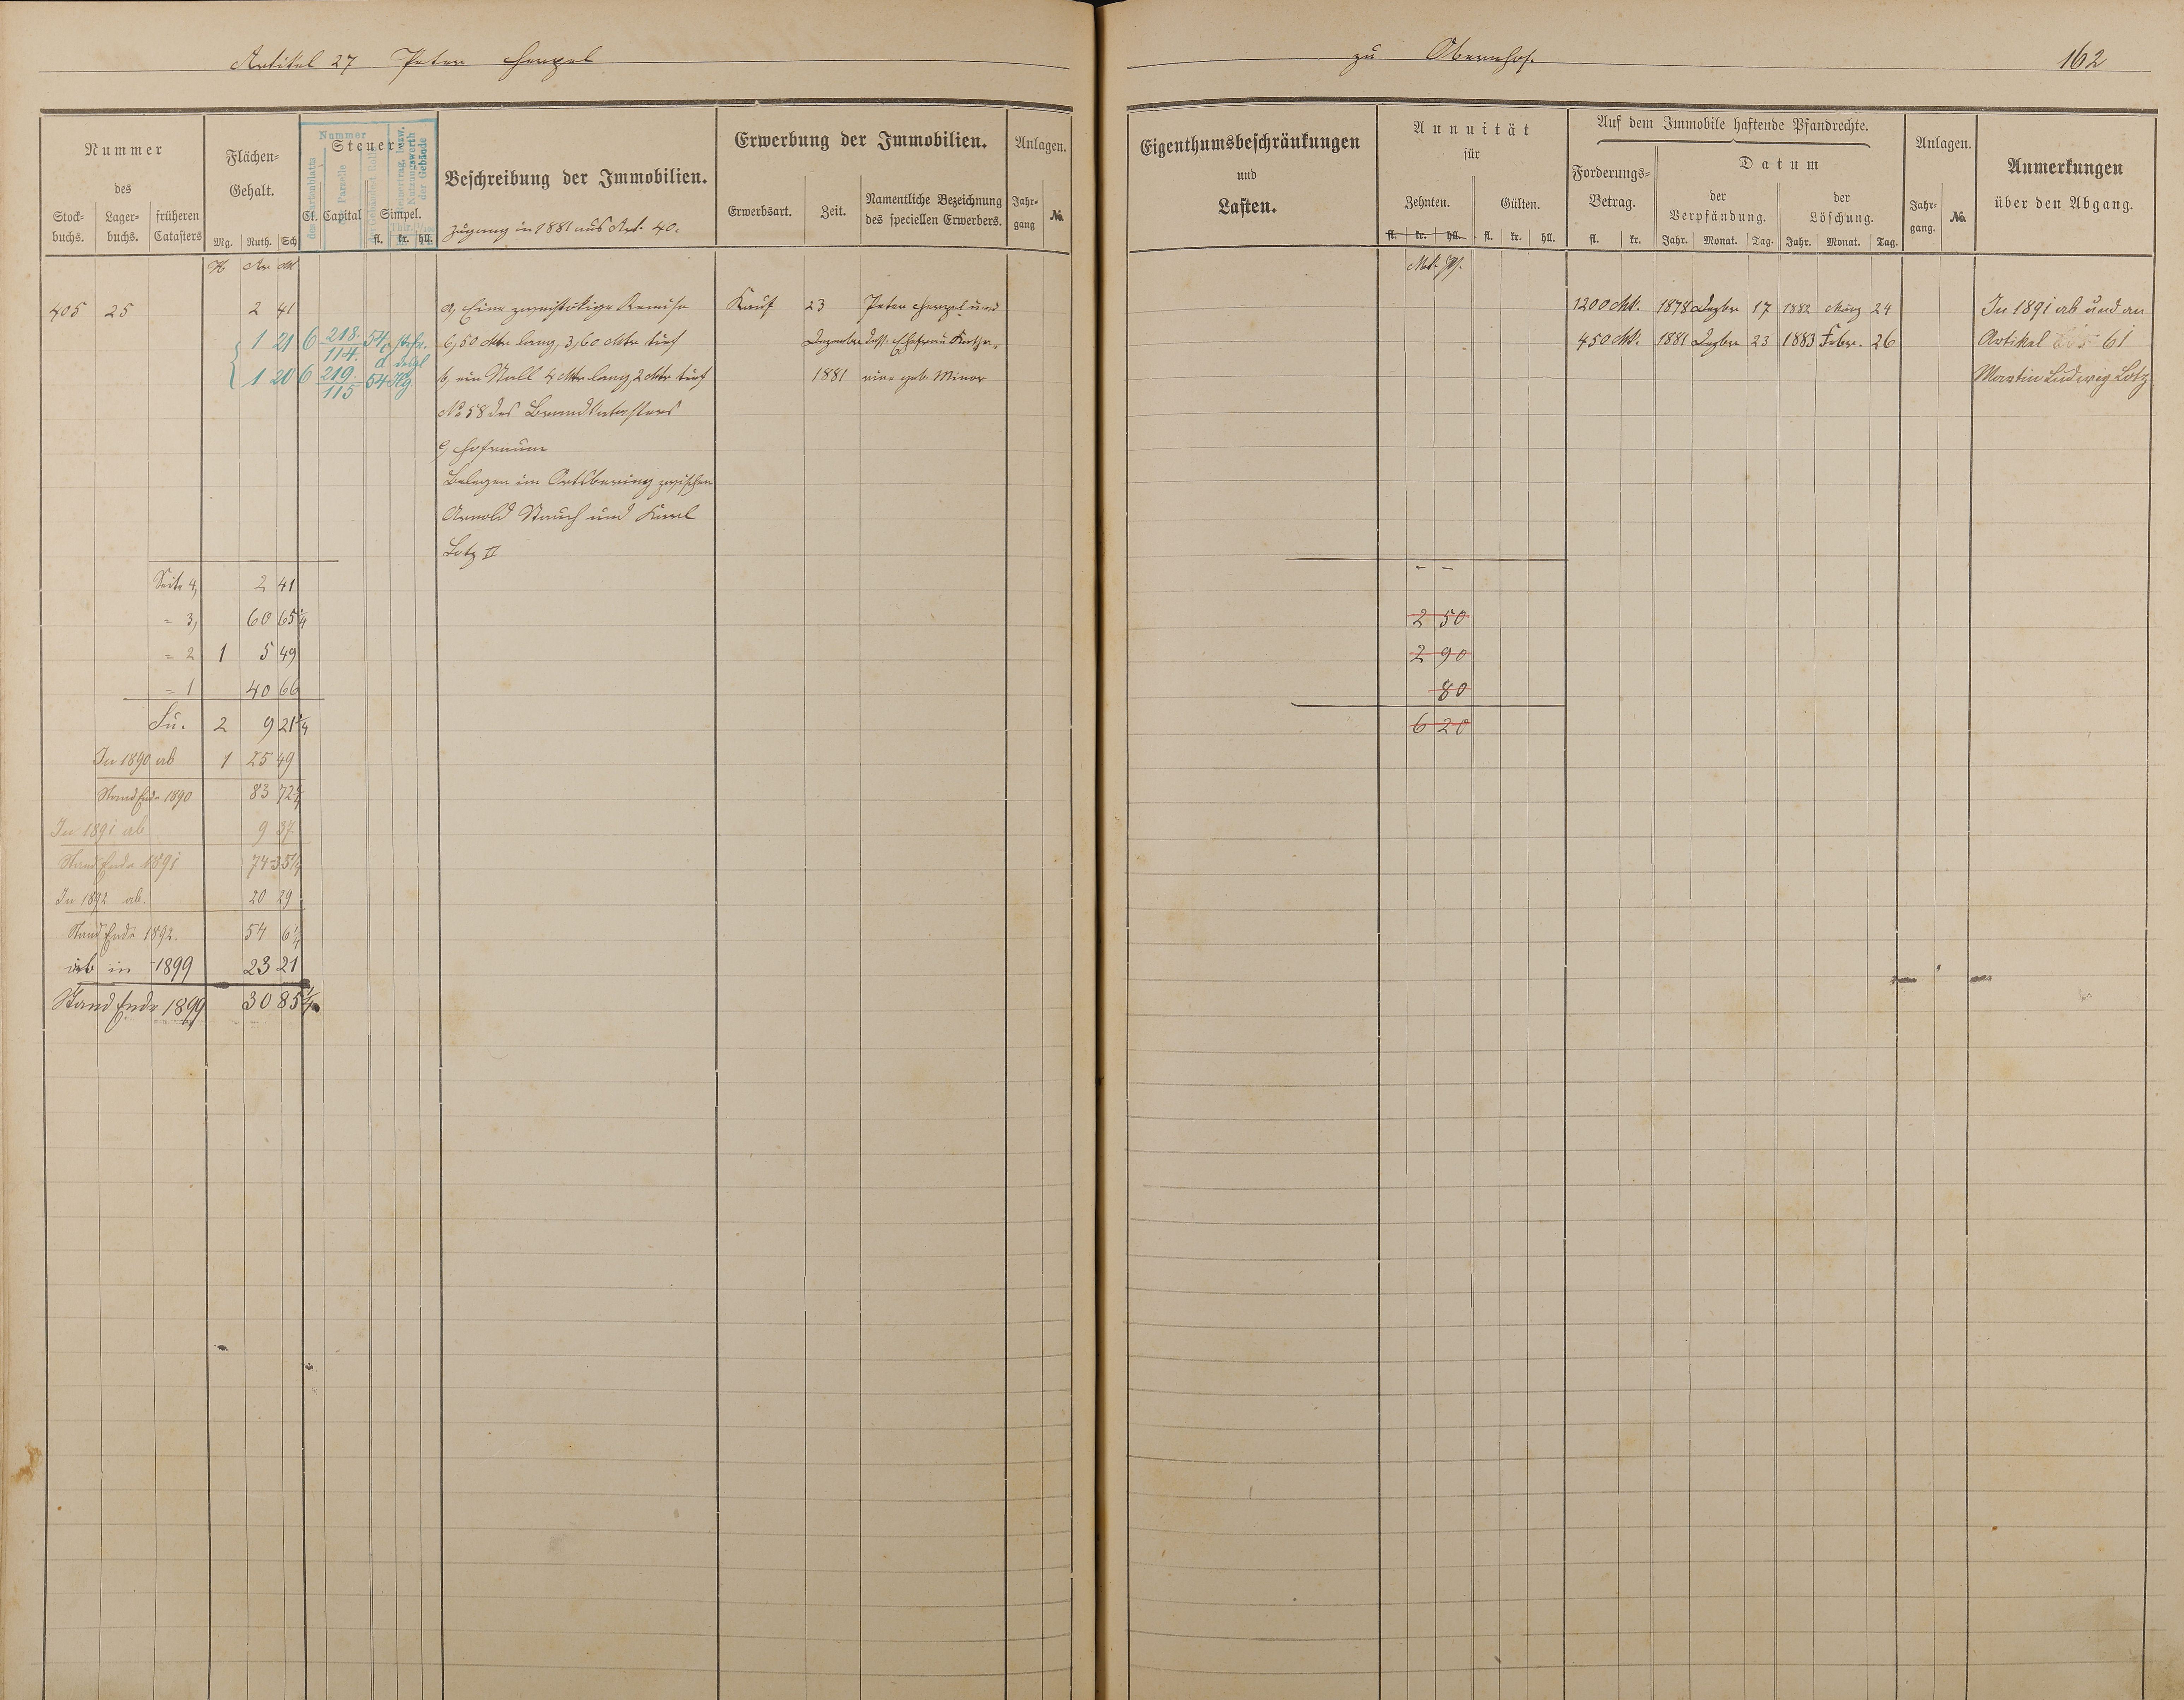 Artikel 27 Peter Hengel
zu Obernhof.
162
Nummer
des
Stock-
buchs.
Lager-
buchs.
früheren
Catasters
Flächen-
Gehalt.
Mg. Ruth. Sch
Nummer
des Kartenblatts
Parzelle
Steuer
Cl. Capital
Simpel.
fl. kr. hll.
Reinertrag, bezw.
Nutzungswerth
der Gebäude
Beschreibung der Immobilien.
Zugang in 1881 aus Art. 40.
Erwerbung der Immobilien.
Erwerbsart. Zeit.
Namentliche Bezeichnung
des speciellen Erwerbers.
Anlagen.
Jahr-
gang
No.
Eigenthumsbeschränkungen
und
Lasten.
Annuität
für
Zehnten. Gülten.
fl. kr. hll. fl. kr. hll.
Auf dem Immobile haftende Pfandrechte.
Forderungs-
Betrag.
fl. kr.
Datum
der
Verpfändung.
der
Löschung.
Jahr. Monat. Tag. Jahr. Monat. Tag.
Anlagen.
Jahr-
gang.
No.
Anmerkungen
über den Abgang.
H Ar M
Mk. Pf.
405 25 2 41 a, Eine zweistökige Remise Kauf 23 Peter Hengel und 1200 Mk. 1878 Dezbr 17 1882 März 24 In 1891 ab und an
1 21 6 218. 114. 54 6,50 Mtr lang, 3,60 Mtr tief Dezember dess. Ehefrau Katha- 450 Mk. 1881 Dezbr 23 1883 Febr. 26 Artikel 61
1 20 6 219. 115 54 Hg b, ein Stall 4 Mtr lang 2 Mtr tief 1881 rine geb. Minor Martin Ludwig Lotz
No 58 des Brandkatasters
c, Hofraum
Belegen im Ortsbering zwischen
Arnold Stauch und Karl
Lotz II
Seite 4, 2 41 - -
= 3, 60 65 1/4 2 50
= 2 1 5 49 2 90
= 1 40 66 80
Su. 2 9 21 1/4 6 20
In 1890 ab 1 25 49
Stand Ende 1890 83 72 1/4
In 1891 ab 9 37
Stand Ende 1891 74 35 1/4
In 1892 ab. 20 29
Stand Ende 1892. 54 6 1/4
ab in 1899 23 21
Stand Ende 1899 30 85 1/4